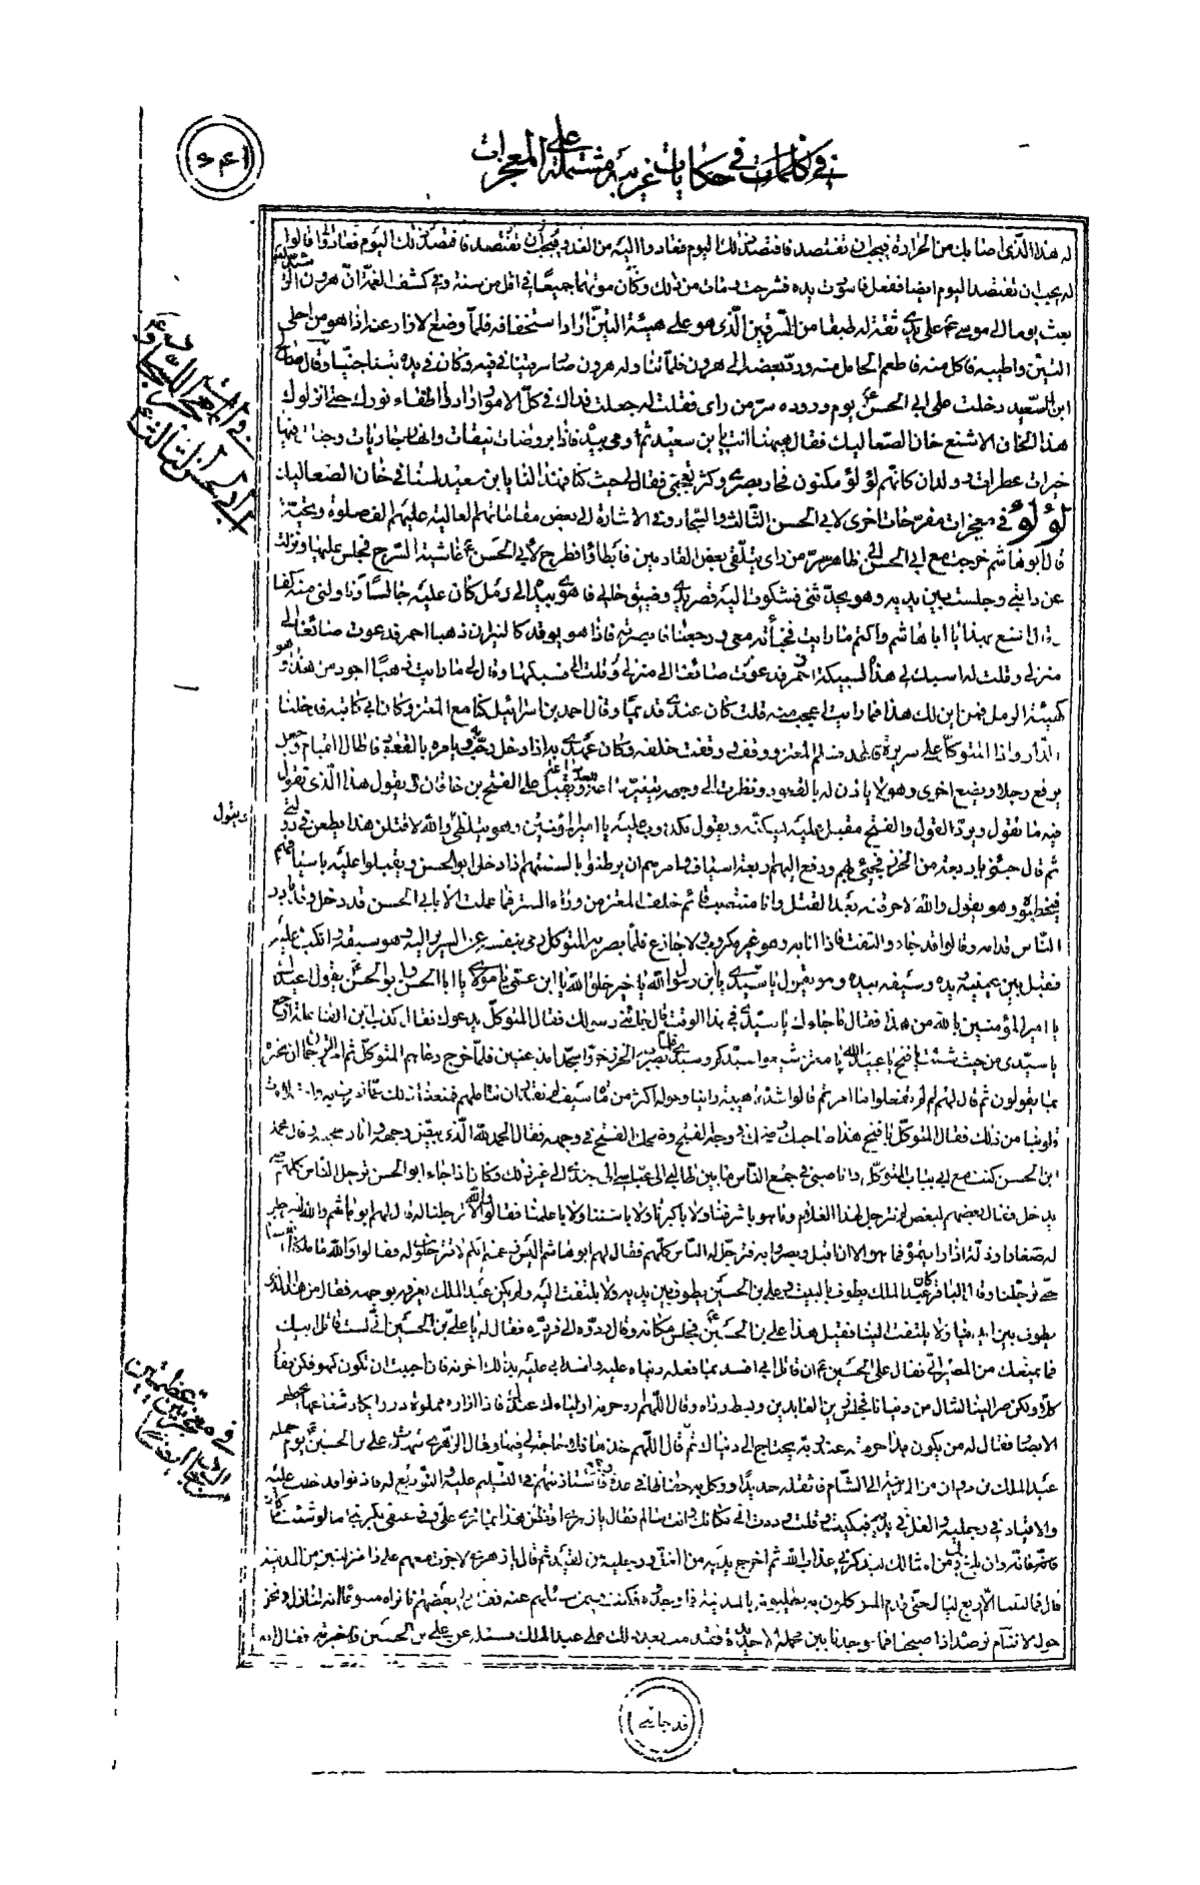 في كلمات في حكايات غريبة مشتملة على المعجزات
له هذا الذى اصابك من الحرارة فيجب ان تفتصد فافتصد ذلك اليوم فعادوا اليه من الغد وفيجب ان تفتصد فافتصد ذلك اليوم فعادوا وقالوا
له يجب ان تفتصد اليوم ايضا ففعل فاسودت يده فشرحت ومات من ذلك وكان موتهما جميعا فى اقل من سنة وفى كشف الغمة ان هرون الرشيد
بعث يوما الى موسى ع على يدى ثقة له طبقا من السرقين الذى هو على هيئة التين اراد استخفافه فلما وضع الازار عنه اذا هو من احلى
التين واطيبه فاكل منه فاطعم الحامل منه ورد بعضه الى هرون فلما تناوله هرون صار سرقينا فى فيه وكان فى يده تينا جنيا وقال صالح
ابن السعيد دخلت على ابى الحسن ع يوم وروده سر من راى فقلت له جعلت فداك فى كل الامور ارادوا اطفاء نورك حتى انزلوك
هذا الخان الاشنع خان الصعاليك فقال ههنا انت يا بن سعيد ثم اومى بيده فاذا بروضات انيقات وانهار جاريات وجنات فيها
خيرات عطرات وولدان كانهم لؤلؤ مكنون فحار بصرى وكثر تعجبى فقال لى حيث كنا فهذا لنا يا بن سعيد لسنا فى خان الصعاليك
لؤلؤ فى معجزات مفرحات اخرى لابى الحسن الثالث والسجاد وفى الاشارة الى بعض مقاماتهم العالية عليهم الف صلوة وتحية
قال ابو هاشم خرجت مع ابى الحسن الى ظاهر سر من راى يتلقى بعض القادمين فابطاؤا فطرح لابى الحسن ع غاشية السرج فجلس عليها ونزلت
عن دابتى وجلست بين يديه وهو يحدثنى فشكوت اليه قصر يدى وضيق حالى فاهوى بيده الى رمل كان عليه جالسا وناولنى منه كفا
وقال اتسع بهذا يا ابا هاشم واكتم ما رايت فخبأته معى ورجعنا فابصرته فاذا هو يوقد كالنيران ذهبا احمر فدعوت صائغا الى
منزلى وقلت له اسبك لى هذا السبيكة فسبكها وقال لى ما رايت ذهبا اجود من هذا وهو
كهيئة الرمل فمن اين لك هذا فما رايت اعجب منه قلت كان عندى قديما وقال احمد بن اسرائيل كنا مع المعتز وكان ابى كاتبه فدخلنا
الدار واذا المتوكل على سريره قاعد فسلم المعتز ووقف ووقفت خلفه وكان عهدى به اذا دخل رحب به ويامره بالقعود فاطال القيام وجعل
يرفع رجلا ويضع اخرى وهو لا ياذن له بالقعود ونظرت الى وجهه يتغير ساعة بعد ساعة ويقبل على الفتح بن خاقان ويقول هذا الذى تقول
فيه ما تقول ويرد القول والفتح مقبل عليه يسكته ويقول مكذوب عليه يا امير المؤمنين وهو يتلظى والله لاقتلن هذا يطعن فى دولتى
ثم قال جئنى باربعة من الخزر فجئ بهم ودفع اليهم اربعة اسياف وامرهم ان يرطنوا بالسنتهم اذا دخل ابو الحسن ويقبلوا عليه باسيافهم
فيخبطوه وهو يقول والله لاحرقنه بعد القتل وانا منتصب قائم خلف المعتز من وراء الستر فما علمت الا بابى الحسن قد دخل وقد بادر
الناس قدامه وقالوا قد جاء والتفت فاذا انا به وهو غير مكروب ولا جازع فلما بصر به المتوكل رمى بنفسه عن السرير اليه وهو سبقه وانكب عليه
فقبل بين عينيه ويده وسيفه بيده وهو يقول يا سيدى يا بن رسول الله يا خير خلق الله يا ابن عمى يا مولاى يا ابا الحسن وابو الحسن يقول اعيذك
يا امير المؤمنين بالله من هذا فقال ما جاء بك يا سيدى فى هذا الوقت قال جائنى رسولك فقال المتوكل يدعوك فقال كذب ابن الفاعلة ارجع
يا سيدى من حيث شئت يا فتح يا عبيد الله يا معتز شيعوا سيدكم وسيدى فلما بصر به الخزر خروا سجدا مذعنين فلما خرج دعاهم المتوكل ثم امر الترجمان ان يخبره
بما يقولون ثم قال لهم لم لم تفعلوا ما امرتم قالوا شدة هيبته راينا حوله اكثر من مائة سيف لم نقدر ان نتاملهم فمنعنا ذلك عما امرت به وامتلاءت
قلوبنا من ذلك فقال المتوكل يا فتح هذا صاحبك وضحك فى وجه الفتح وضحك الفتح فى وجهه فقال الحمد لله الذى بيض وجهه وانار حجته وقال محمد
ابن الحسن كنت مع ابى بباب المتوكل وانا صبى فى جمع الناس ما بين طالبى الى عباسى الى جندى الى غير ذلك وكان اذا جاء ابو الحسن ترجل الناس كلهم حتى
يدخل فقال بعضهم لبعض لم نترجل لهذا الغلام وما هو باشرفنا ولا باكبرنا ولا باسننا ولا باعلمنا فقالوا والله لا ترجلنا له قال لهم ابو هاشم والله لتترجلن
له صغارا وذلة اذا رايتموه فما هو الا ان اقبل وبصروا به فترجل له الناس كلهم فقال لهم ابو هاشم اليس زعمتم انكم لا تترجلون له فقالوا والله ما ملكنا انفسنا
حتى ترجلنا وقال الباقر كان عبد الملك يطوف بالبيت وعلى بن الحسين يطوف بين يديه ولا يلتفت اليه ولم يكن عبد الملك يعرفه بوجهه فقال من هذا الذى
يطوف بين ايدينا ولا يلتفت الينا فقيل هذا على بن الحسين ع فجلس مكانه وقال ردوه الى فردوه فقال له يا على بن الحسين انى لست قاتل ابيك
فما يمنعك من المصير الى فقال على بن الحسين ع ان قاتل ابى افسد بما فعله دنياه عليه وافسد ابى عليه بذلك اخرته فان احببت ان تكون كهو فكن فقال
كلا ولكن صر الينا لتنال من دنيانا فجلس زين العابدين وبسط رداه وقال اللهم اره حرمة اوليائك عندك فاذا ازاره مملوة دررا يكاد شعاعها يخطف
الابصار فقال له من يكون هذا حرمته عند ربه يحتاج الى دنياك ثم قال اللهم خذها فلا حاجة لى فيها وقال الزهرى شهدت على بن الحسين ع يوم حمله
عبد الملك بن مروان من المدينة الى الشام فاثقله حديدا ووكل به حفاظا فى عدة فاستاذنتهم فى التسليم عليه والتوديع له فاذنوا فدخلت عليه
والاقياد فى رجليه والغل فى يديه فبكيت وقلت وددت انى مكانك وانت سالم فقال يا زهرى اوتظن هذا بما ترى على وفى عنقى يكربنى اما لو شئت ما كان
فانه وان بلغ بك ومن امثالك ليذكرنى عذاب الله ثم اخرج يديه من الغل ورجليه من القيد ثم قال يا زهرى لا جزت معهم على ذا منزلتين من المدينة
قال فما لبثنا الا اربع ليال حتى قدم الموكلون به يطلبونه بالمدينة فما وجدوه فكنت فيمن سئلهم عنه فقال لى بعضهم انا نراه متبوعا انه لنازل ونحن
حوله لا ننام نرصده اذا صبحنا فما وجدنا بين محمله الا حديدة فقدمت بعد ذلك على عبد الملك فسئلنى عن على بن الحسين فاخبرته فقال انه
ويقول
قد جائنى